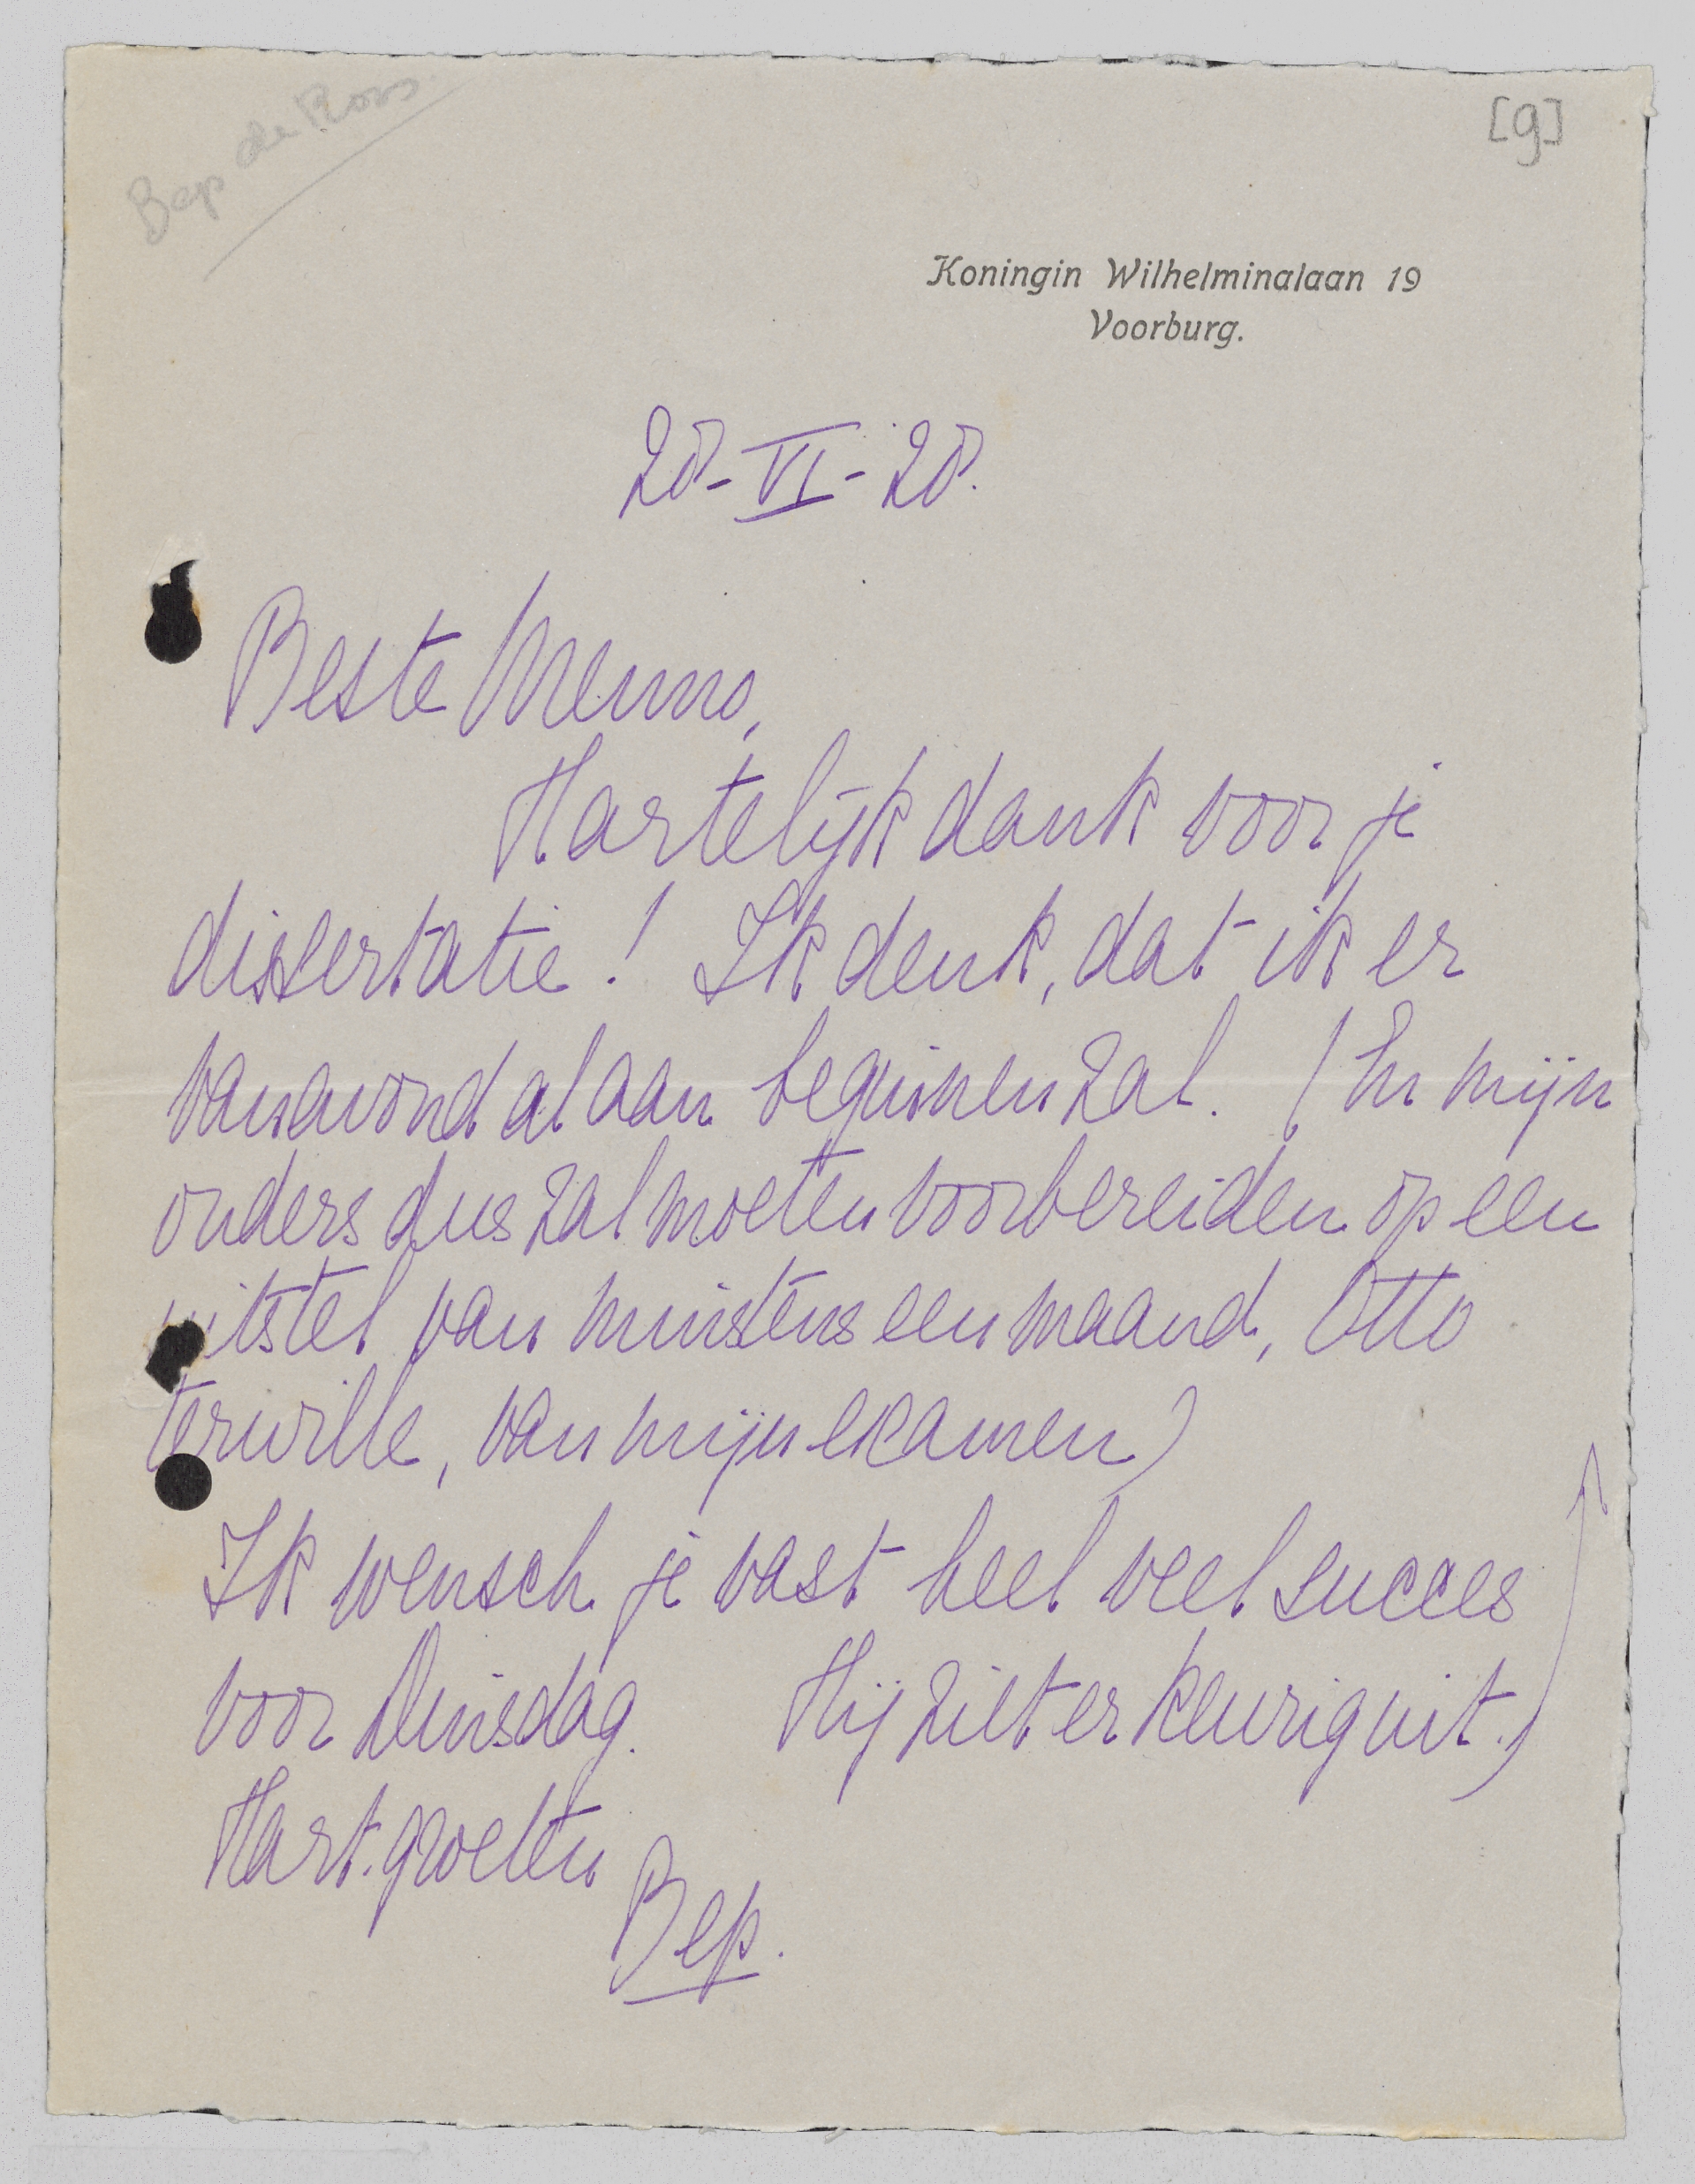 Bep de Roos
[g]
Koningin Wilhelminalaan 19
Voorburg.
28-VI-28.
Beste Menno,
Hartelijk dank voor je
dissertatie! Ik denk, dat ik er
vanavond al aan beginnen zal. (En mijn
ouders dus zal moeten voorbereiden op een
uitstel van minstens een maand, Otto
terwille, van mijn examen)
Ik wensch je vast heel veel succes
voor Dinsdag. Hij ziet er keurig uit.)
Hart. groeten
Bep.